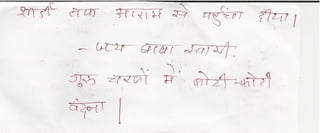 शीर्डी तक आराम से पहुँचा दीया।
- जय बाबा स्वामी.
गुरु चरणों में कोटी-कोटी
वंदना।